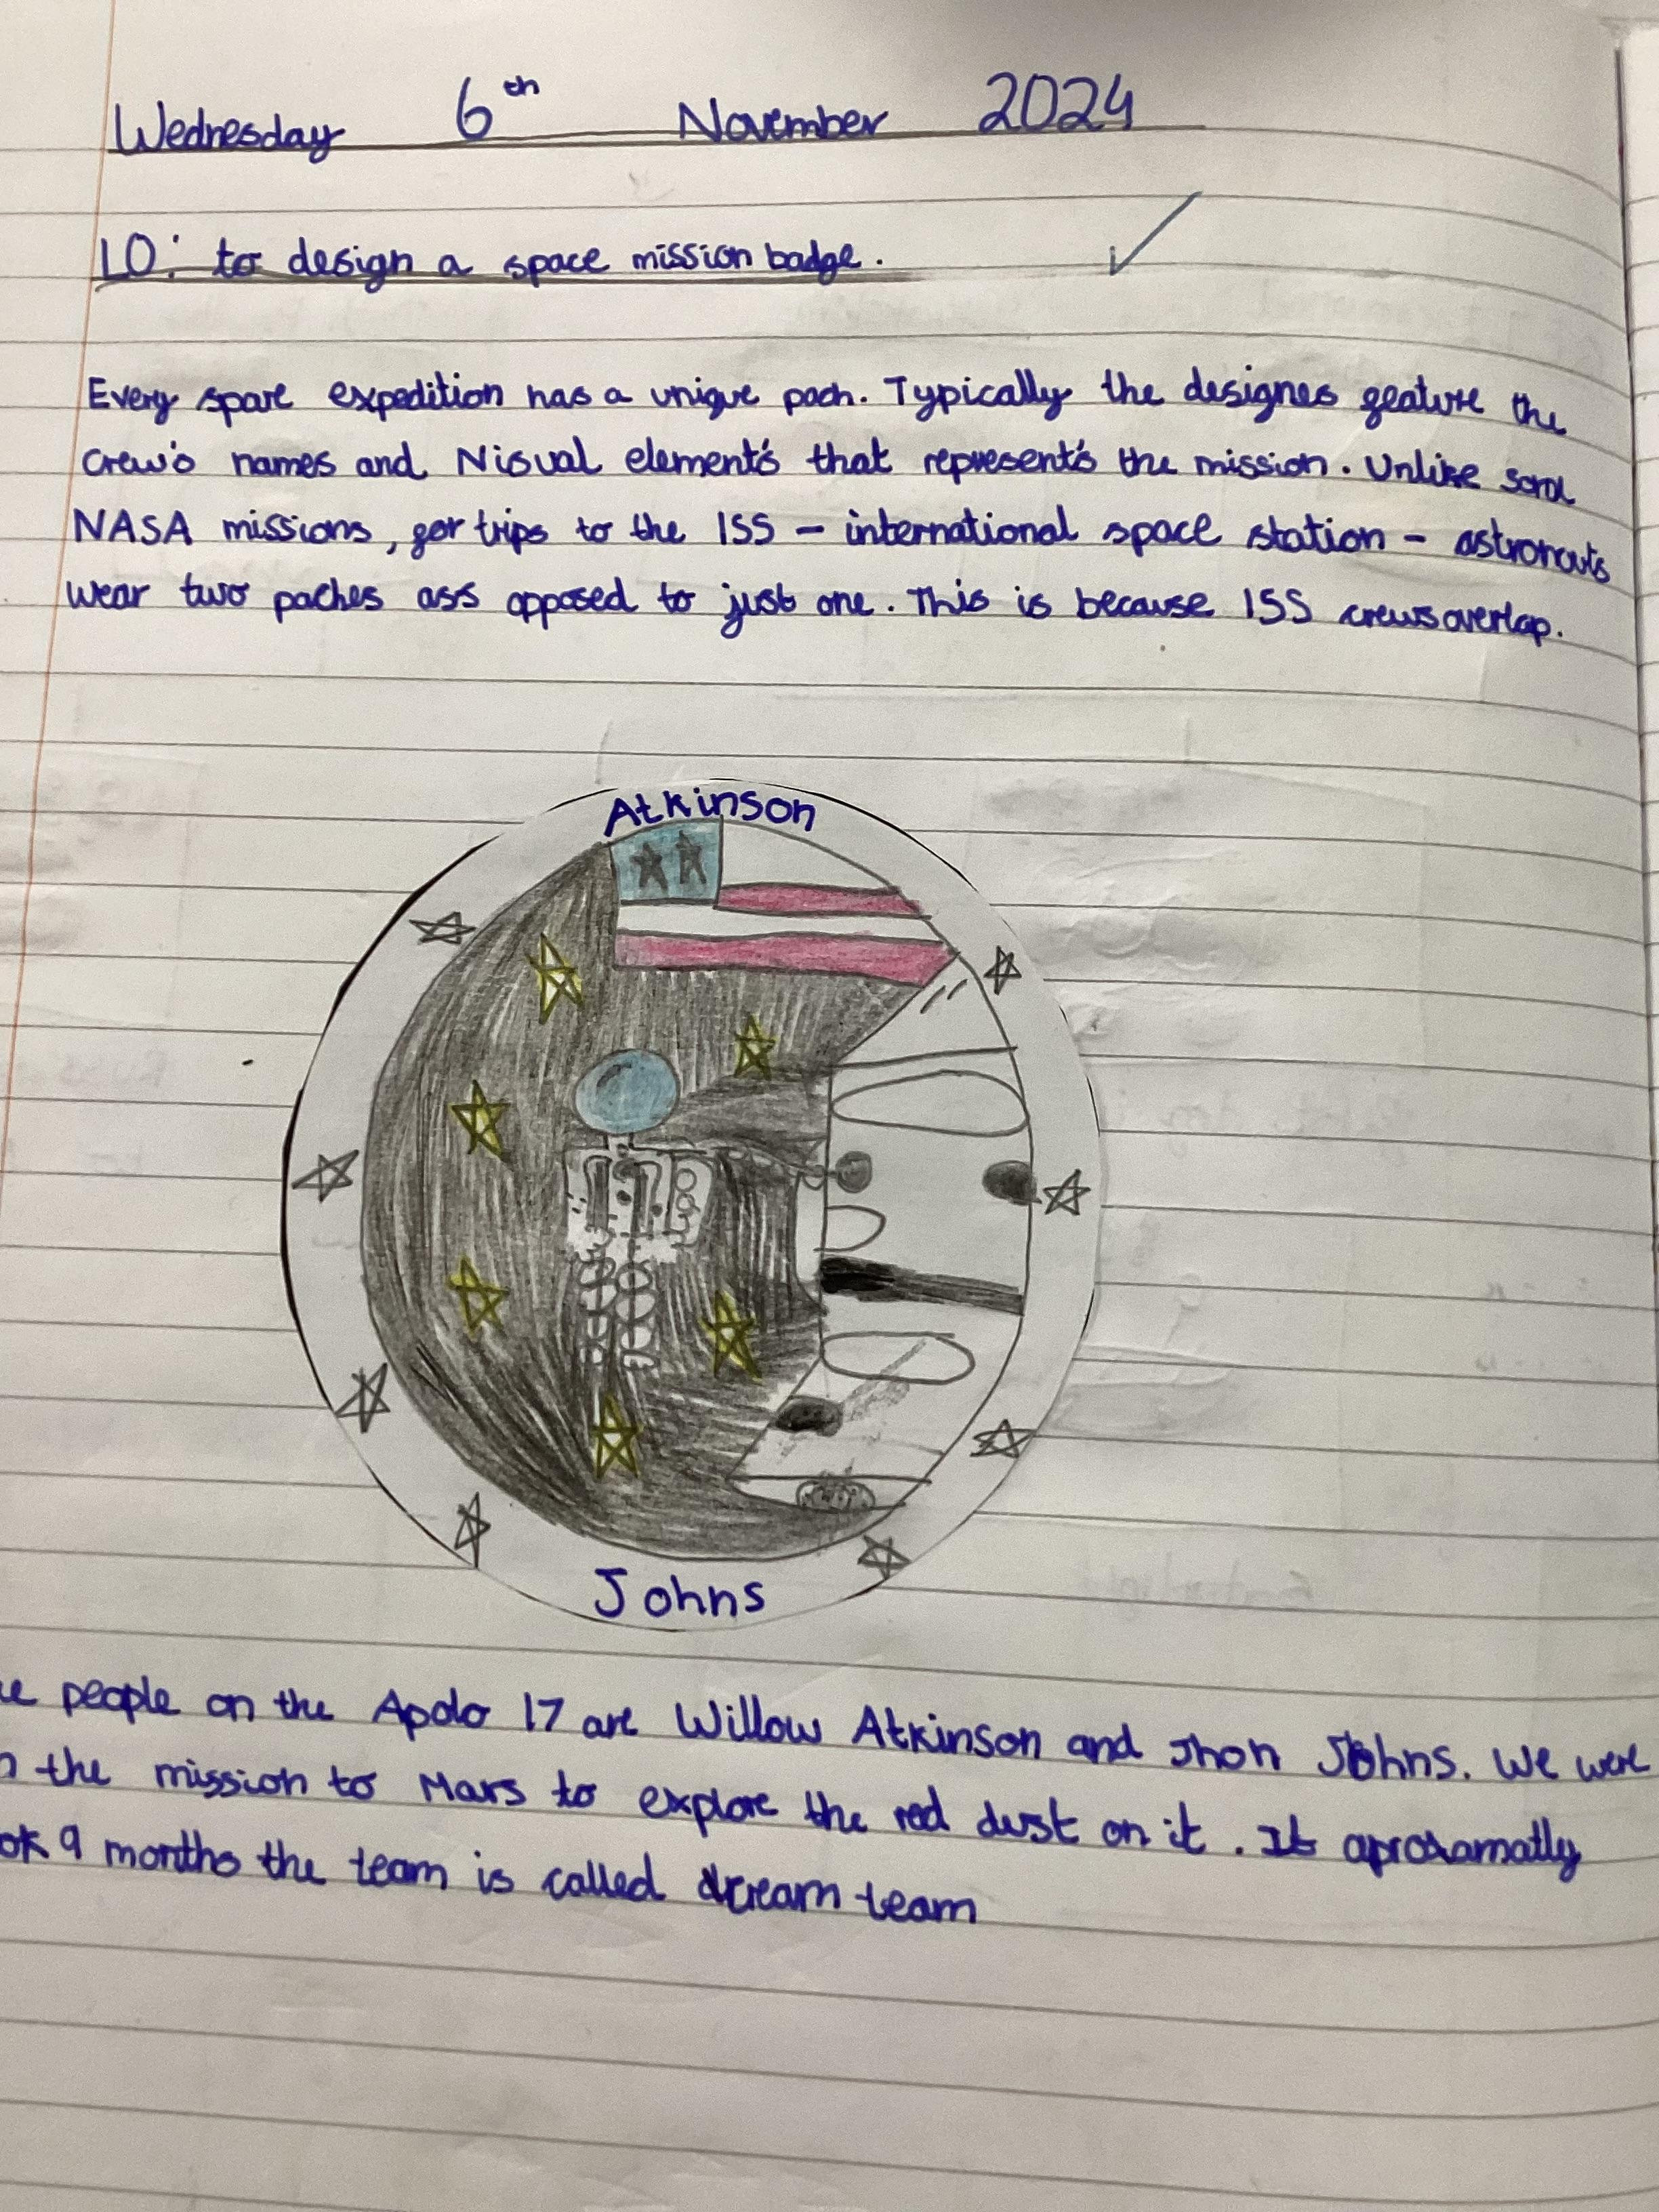 Wednesday 6th November 2024
LO: to design a space mission badge.
Every spare expedition has a unique pach. Typically the designes feature the
crew's names and Nisual element's that represent's the mission. Unlike some
NASA missions, for trips to the ISS - international space station - astronauts
wear two paches ass opposed to just one. This is because ISS crews overlap.
Atkinson
Johns
people on the Apolo 17 are Willow Atkinson and Jhon Johns. We were
the mission to Mars to explore the red dust on it. It aproxamatly
9 months the team is called dream team